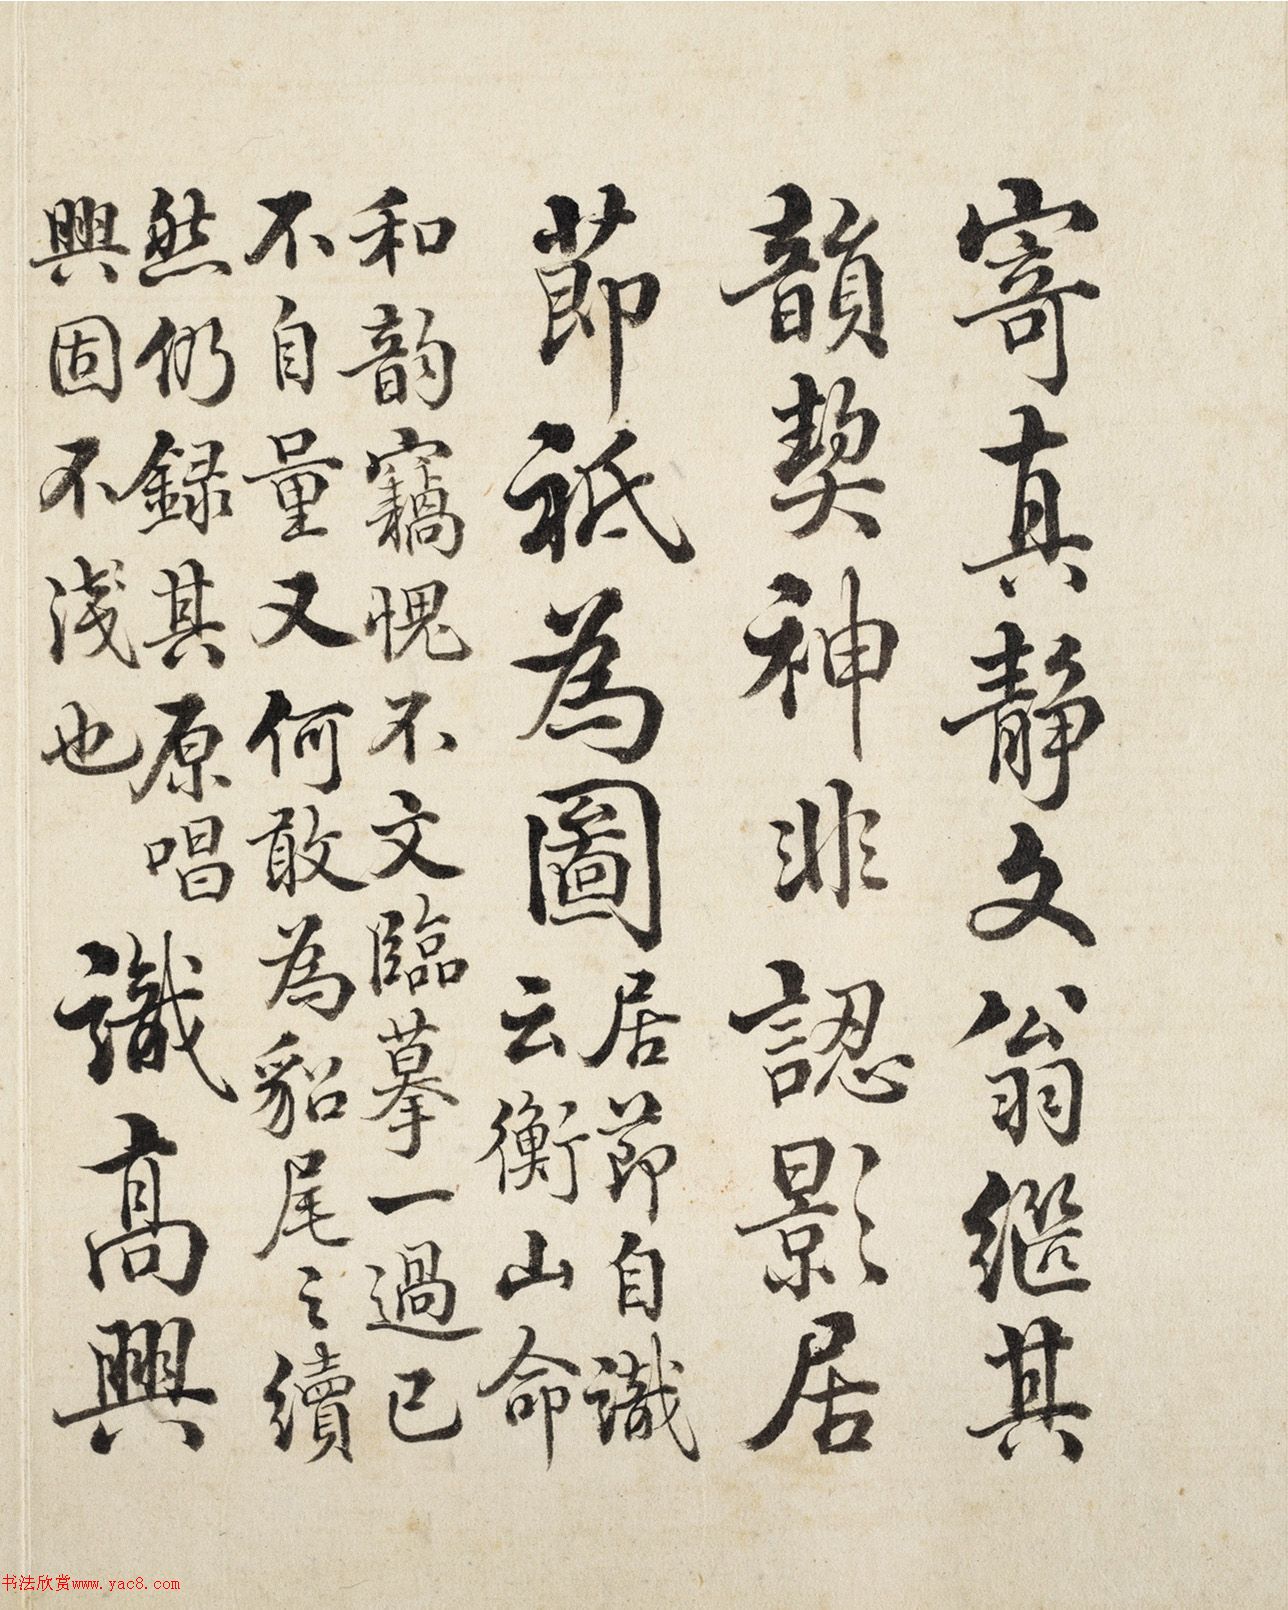 寄真靜文翁繼其
韻契神非認影居
節祇為圖
居節自識
云衡山命
和韵竊愧不文臨摹一過已
不自量又何敢為貂尾之續
然仍録其原唱
興固不淺也
識高興
书法欣赏www.yac8.com